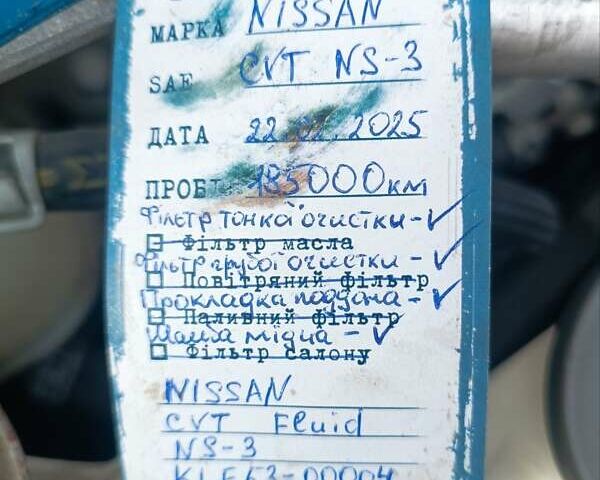 МАРКА NISSAN
SAE CVT NS-3
ДАТА 22 2025
ПРОБ 185000км
Фільтр тонкої очистки - ✓
Фільтр масла
Фільтр грубої очистки - ✓
Повітряний фільтр
Прокладка поддона - ✓
Паливний фільтр
Шайба мідна - ✓
Фільтр салону
NISSAN
CVT Fluid
NS-3
KLE53-00004